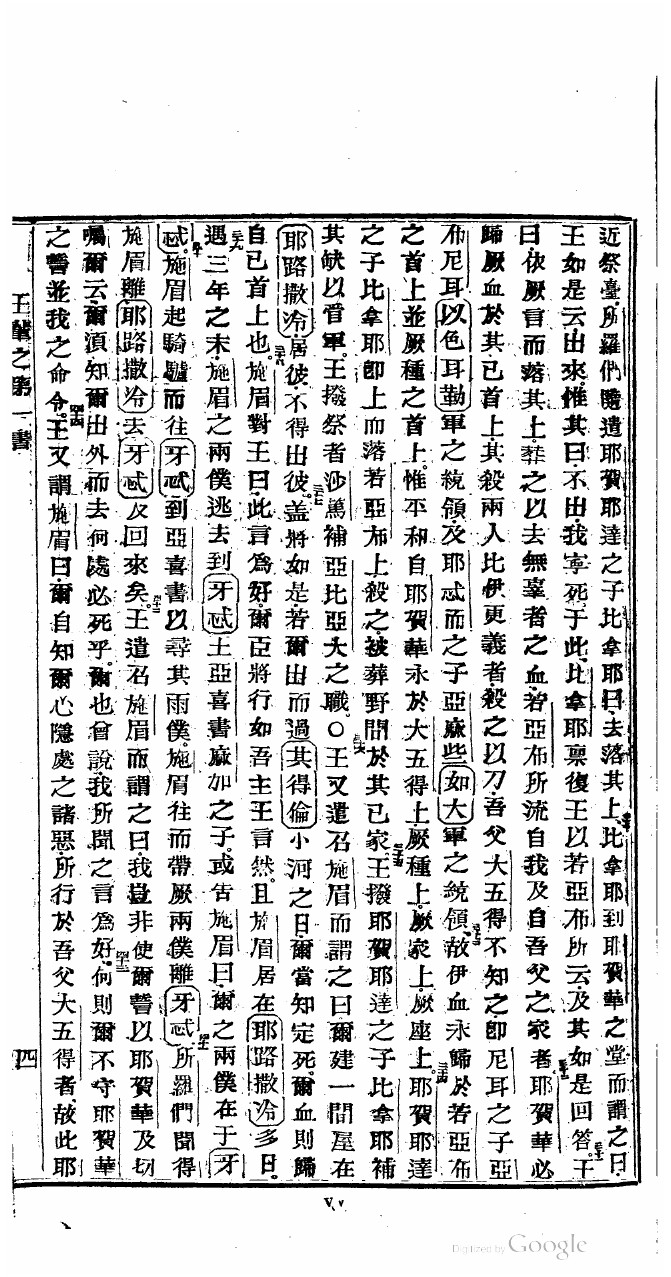 近祭臺所羅們隨遣耶賀耶達之子比拿耶曰去落其上三十比拿耶到耶賀華之堂而謂之曰
王如是云出來惟其曰不出我寧死于此比拿耶禀復王以若亞布所云及其如是回答三十一王
曰依厥言而落其上葬之以去無辜者之血若亞布所流自我及自吾父之家者三十二耶賀華必
歸厥血於其已首上其殺兩人比伊更義者殺之以刀吾父大五得不知之即尼耳之子亞
布尼耳以色耳勒軍之統領及耶忒而之子亞麻些如大軍之統領三十三故伊血永歸於若亞布
之首上並厥種之首上惟平和自耶賀華永於大五得上厥種上厥家上厥座上三十四耶賀耶達
之子比拿耶即上而落若亞布上殺之被葬野間於其已家三十五王撥耶賀耶達之子比拿耶補
其缺以管軍王撥祭者沙篤補亞比亞大之職〇三十六王又遣召施眉而謂之曰爾建一間屋在
耶路撒冷居彼不得出彼三十七蓋將如是若爾出而過其得倫小河之日爾當知定死爾血則歸
自已首上也三十八施眉對王曰此言為好爾臣將行如吾主王言然且施眉居在耶路撒冷多日
三十九遇三年之末施眉之兩僕逃去到牙忒王亞喜書麻加之子或告施眉曰爾之兩僕在于牙
忒四十施眉起騎驢而往牙忒到亞喜書以尋其兩僕施眉往而帶厥兩僕離牙忒四十一所羅們聞得
施眉離耶路撒冷去牙忒及回來矣四十二王遣召施眉而謂之曰我豈非使爾誓以耶賀華及切
囑爾云爾須知爾出外而去何處必死乎爾也曾說我所聞之言為好四十三何則爾不守耶賀華
之誓並我之命令四十四王又謂施眉曰爾自知爾心隱處之諸惡所行於吾父大五得者故此耶
王輩之第一書
四
Digitized by Google